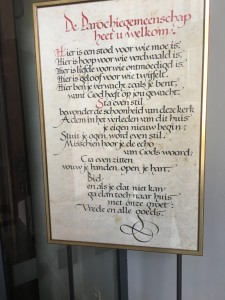 De Parochiegemeenschap
heet u welkom:
Hier is een stoel voor wie moe is.
Hier is hoop voor wie verdwaald is.
Hier is liefde voor wie ontmoedigd is.
Hier is geloof voor wie twijfelt.
Hier ben je verwacht zoals je bent,
want God heeft op jou gewacht.
Sta even stil
bewonder de schoonheid van deze kerk.
Adem in het verleden van dit huis
je eigen nieuw begin:
Sluit je ogen, word even stil.
Misschien hoor je de echo
van Gods woord:
Ga even zitten
vouw je handen, open je hart.
Bid:
en als je dat niet kan
ga dan toch naar huis
met onze groet:
Vrede en alle goeds.